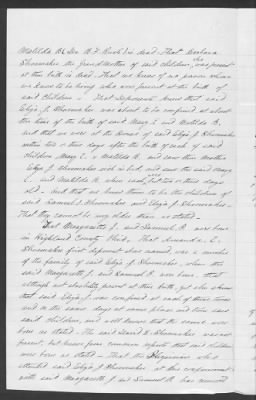 Matilda B. Dr. B. F. Rush is dead - That Barbara
Shoemaker the Grand Mother of said children, who was present
at their birth is dead - That we know of no person whom
we know to be living who were present at the birth of
said children - That deponents knew that said
Eliza J. Shoemaker was about to be confined at about
the time of the birth of said Mary E. and Matilda B.
and that we were at the house of said Eliza J. Shoemaker
within two or three days after the birth of each of said
children Mary E. & Matilda B. and saw their Mother
Eliza J. Shoemaker sick in bed, and saw the said Mary
E. and Matilda B. when said two or three days
old - And that we knew them to be the children of
said Samuel S. Shoemaker and Eliza J. Shoemaker -
That they cannot be any older than is stated -
That Margarette J. and Samuel R. were born
in Highland County Ohio, That Amanda E.
Shoemaker first deponent named, was a member
of the family of said Eliza J. Shoemaker, when the
said Margarette J. and Samuel R. were born, that
although not absolutely present at their birth, yet she knew
that said Eliza J. was confined at each of these times
and on the same days at same place and time saw
said children, and well knows that the same were
born as stated - The said E. Shoemaker was not
present, but knows from common reports that said children
were born as stated - That the Physician who
attended said Eliza J. Shoemaker at his confinement
with said Margarette J. and Samuel R. has removed